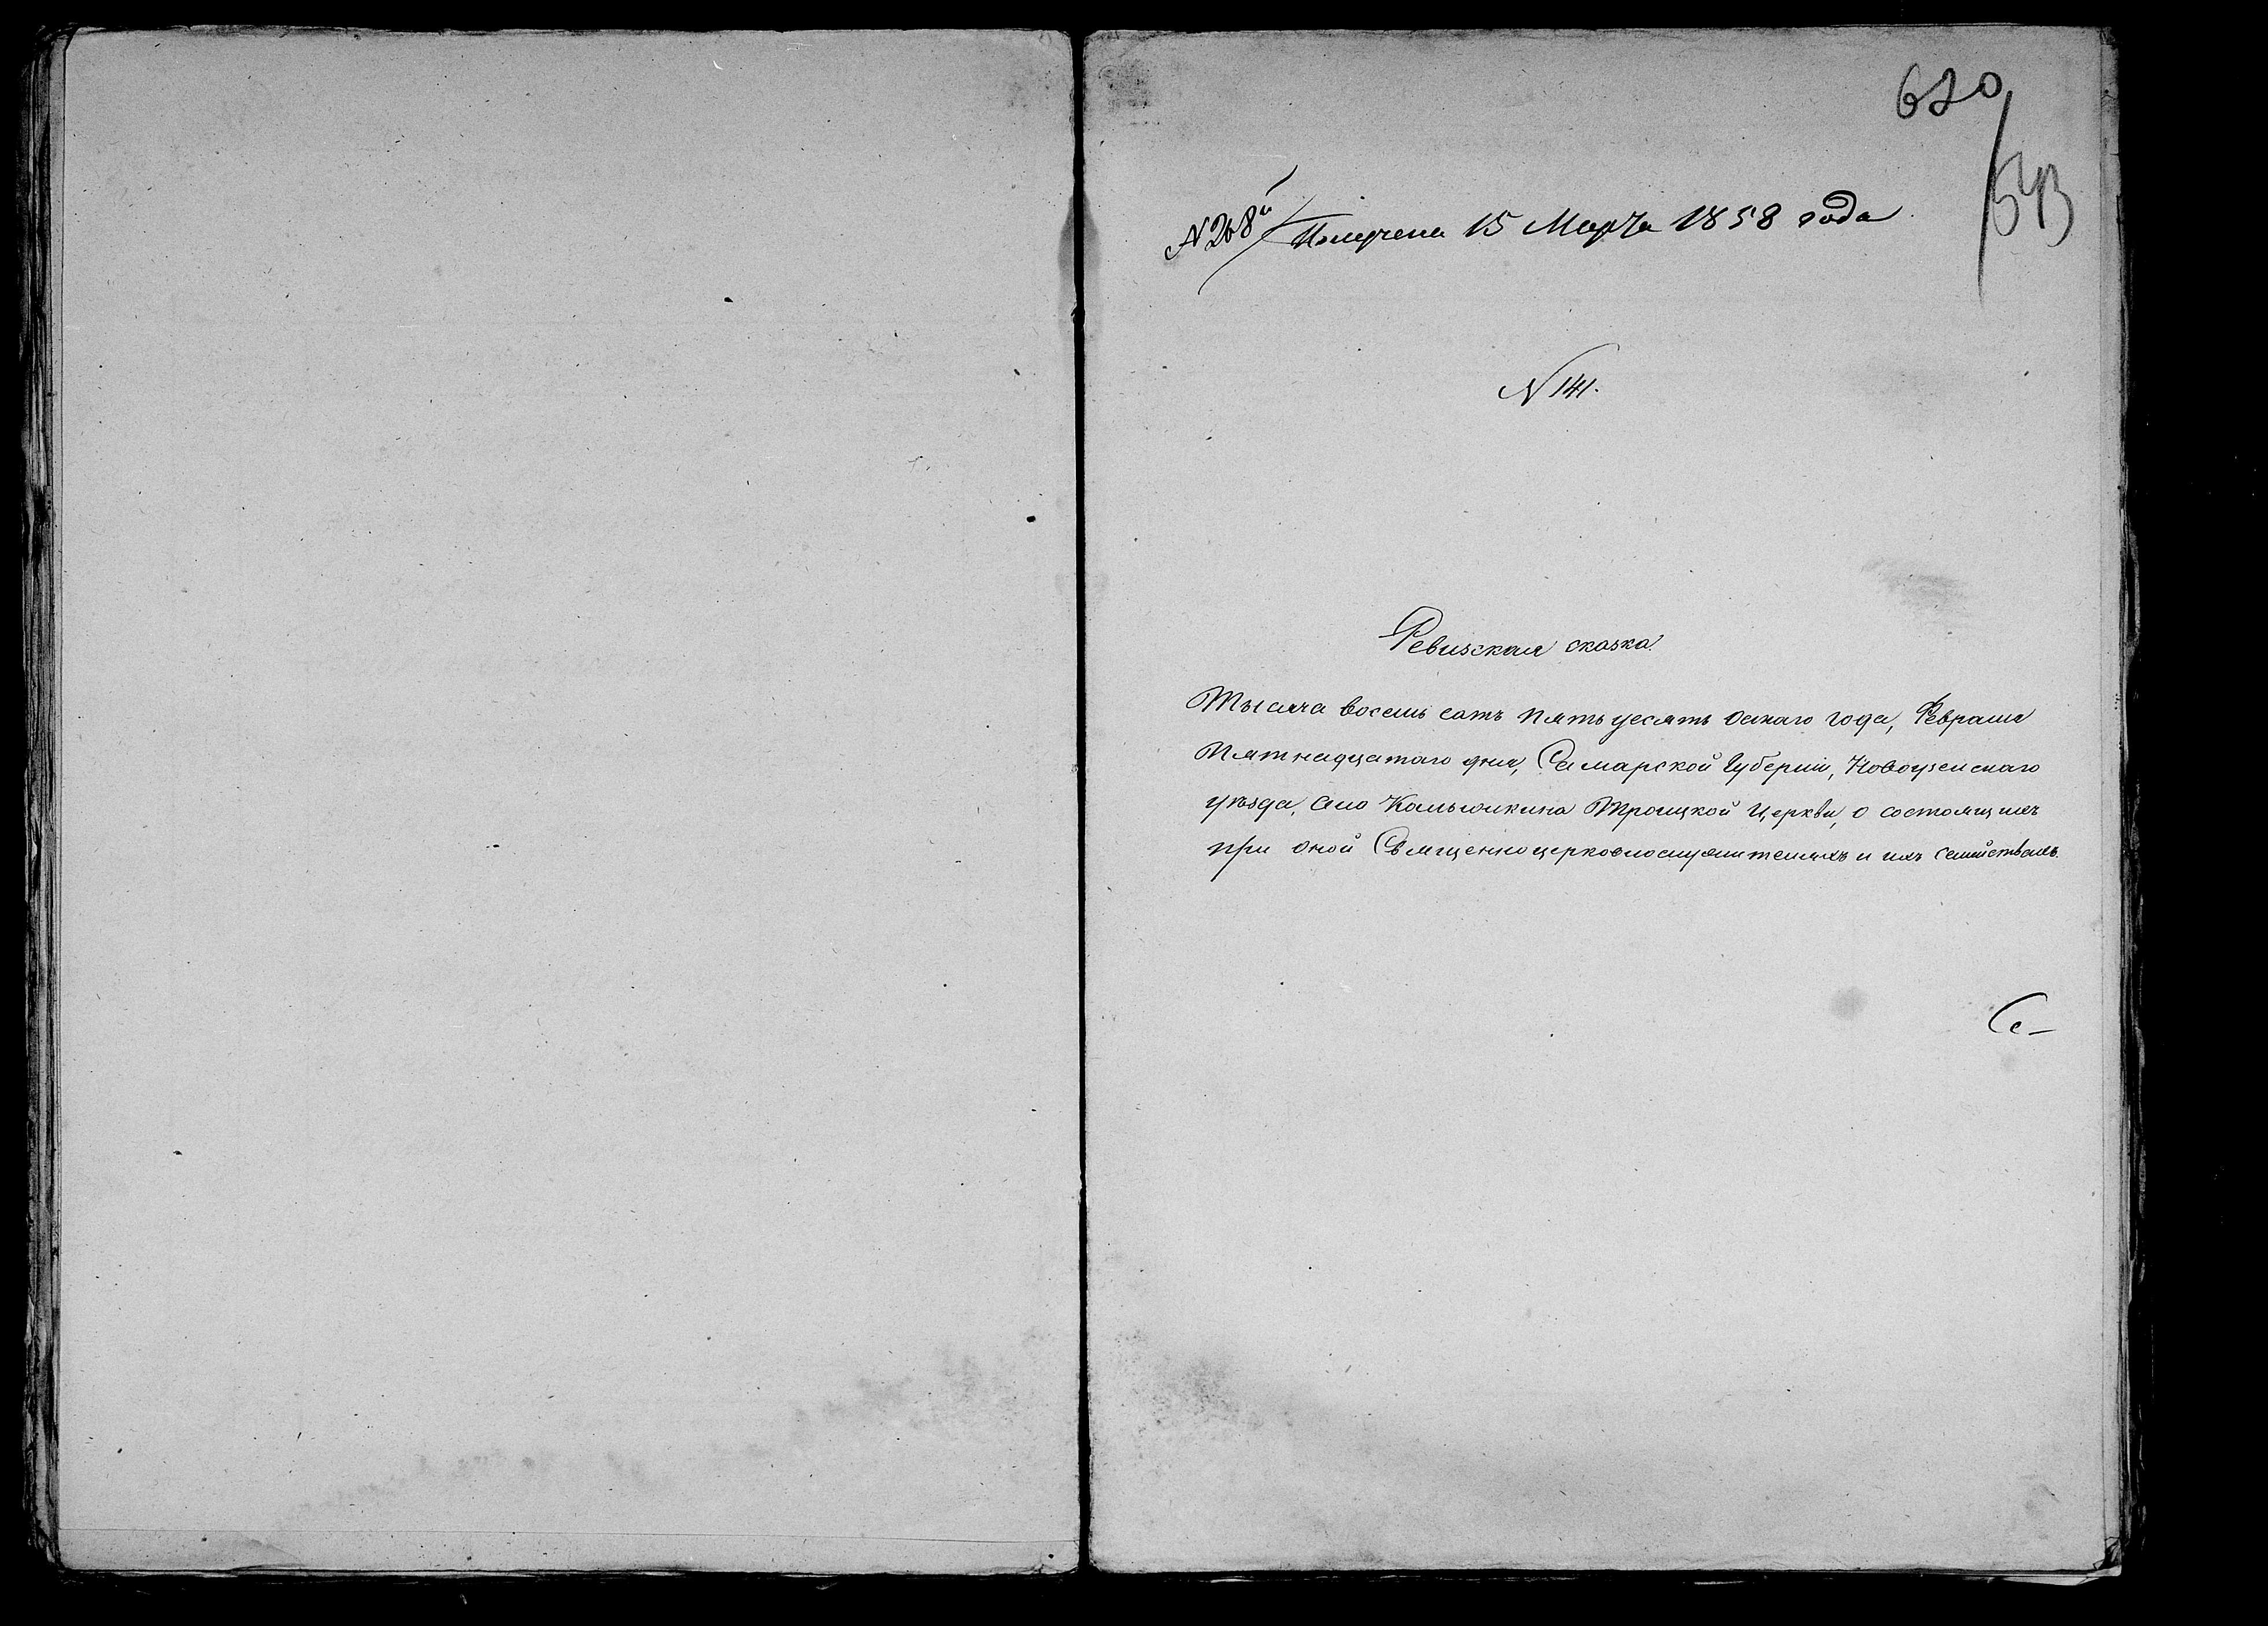 620
543
N 268й Получена 15 Марта 1858 года
N 141.
Ревизская сказка
Тысяча восемь сотъ пятьдесятъ осмаго года, Февраля
Пятнадцатаго дня, Самарской Губерніи, Новоузенскаго
уѣзда, села Камышкина Троицкой Церкви, о состоящихъ
при оной Священноцерковнослужителяхъ и ихъ семействахъ.
Се-